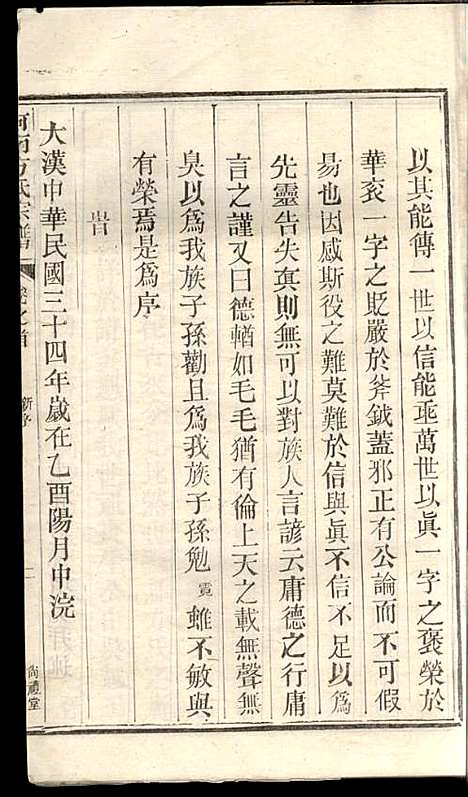 以其能傳一世以信能乖萬世以眞一字之褒榮於
華衮一字之貶嚴於斧鉞蓋邪正有公論而不可假
易也因感斯役之難莫難於信與眞不信不足以爲
先靈告失眞則無可以對族人言諺云庸德之行庸
言之謹又曰德輶如毛毛猶有倫上天之載無聲無
臭以爲我族子孫勸且爲我族子孫勉霓雖不敏與
有榮焉是爲序
旹
大漢中華民國三十四年歲在乙酉陽月中浣
方氏宗譜 卷之首 新序 尚禮堂